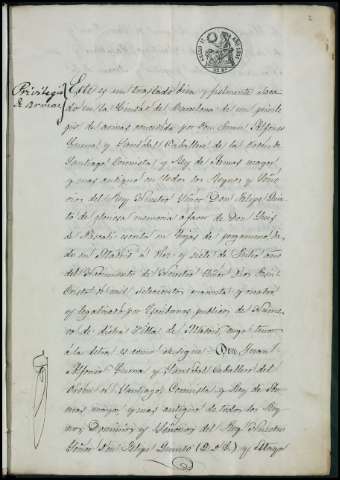 Privilegio
de armas
Este es un traslado bien y fielmente saca-
do en la Ciudad de Barcelona de un privile-
gio de armas concedido por Don Juan Alfonso
Guerra y Sandoval Caballero de la Orden de
Santiago Coronista y Rey de Armas mayor
y mas antiguo en todos los Reynos y Seño-
rios del Rey Nuestro Señor Don Felipe Quin-
to de gloriosa memoria a favor de Don Luis
de escrito en hojas de pergamino da-
do en Madrid á diez y siete de Julio años
del Nacimiento de Nuestro Señor Dios Jesu-
Cristo de mil setecientos cuarenta y cuatro
y legalizado por Escribanos publicos de Nume-
ro de dicha Villa de Madrid, cuyo tenor
á la letra es como se sigue. Don Juan
Alfonso Guerra y Sandoval Caballero del
Orden de Santiago, Coronista y Rey de Ar-
mas mayor, y mas antiguo de todos los Rey-
nos, Dominios y Señorios del Rey Nuestro
Señor Don Felipe Quinto (D. G.) y